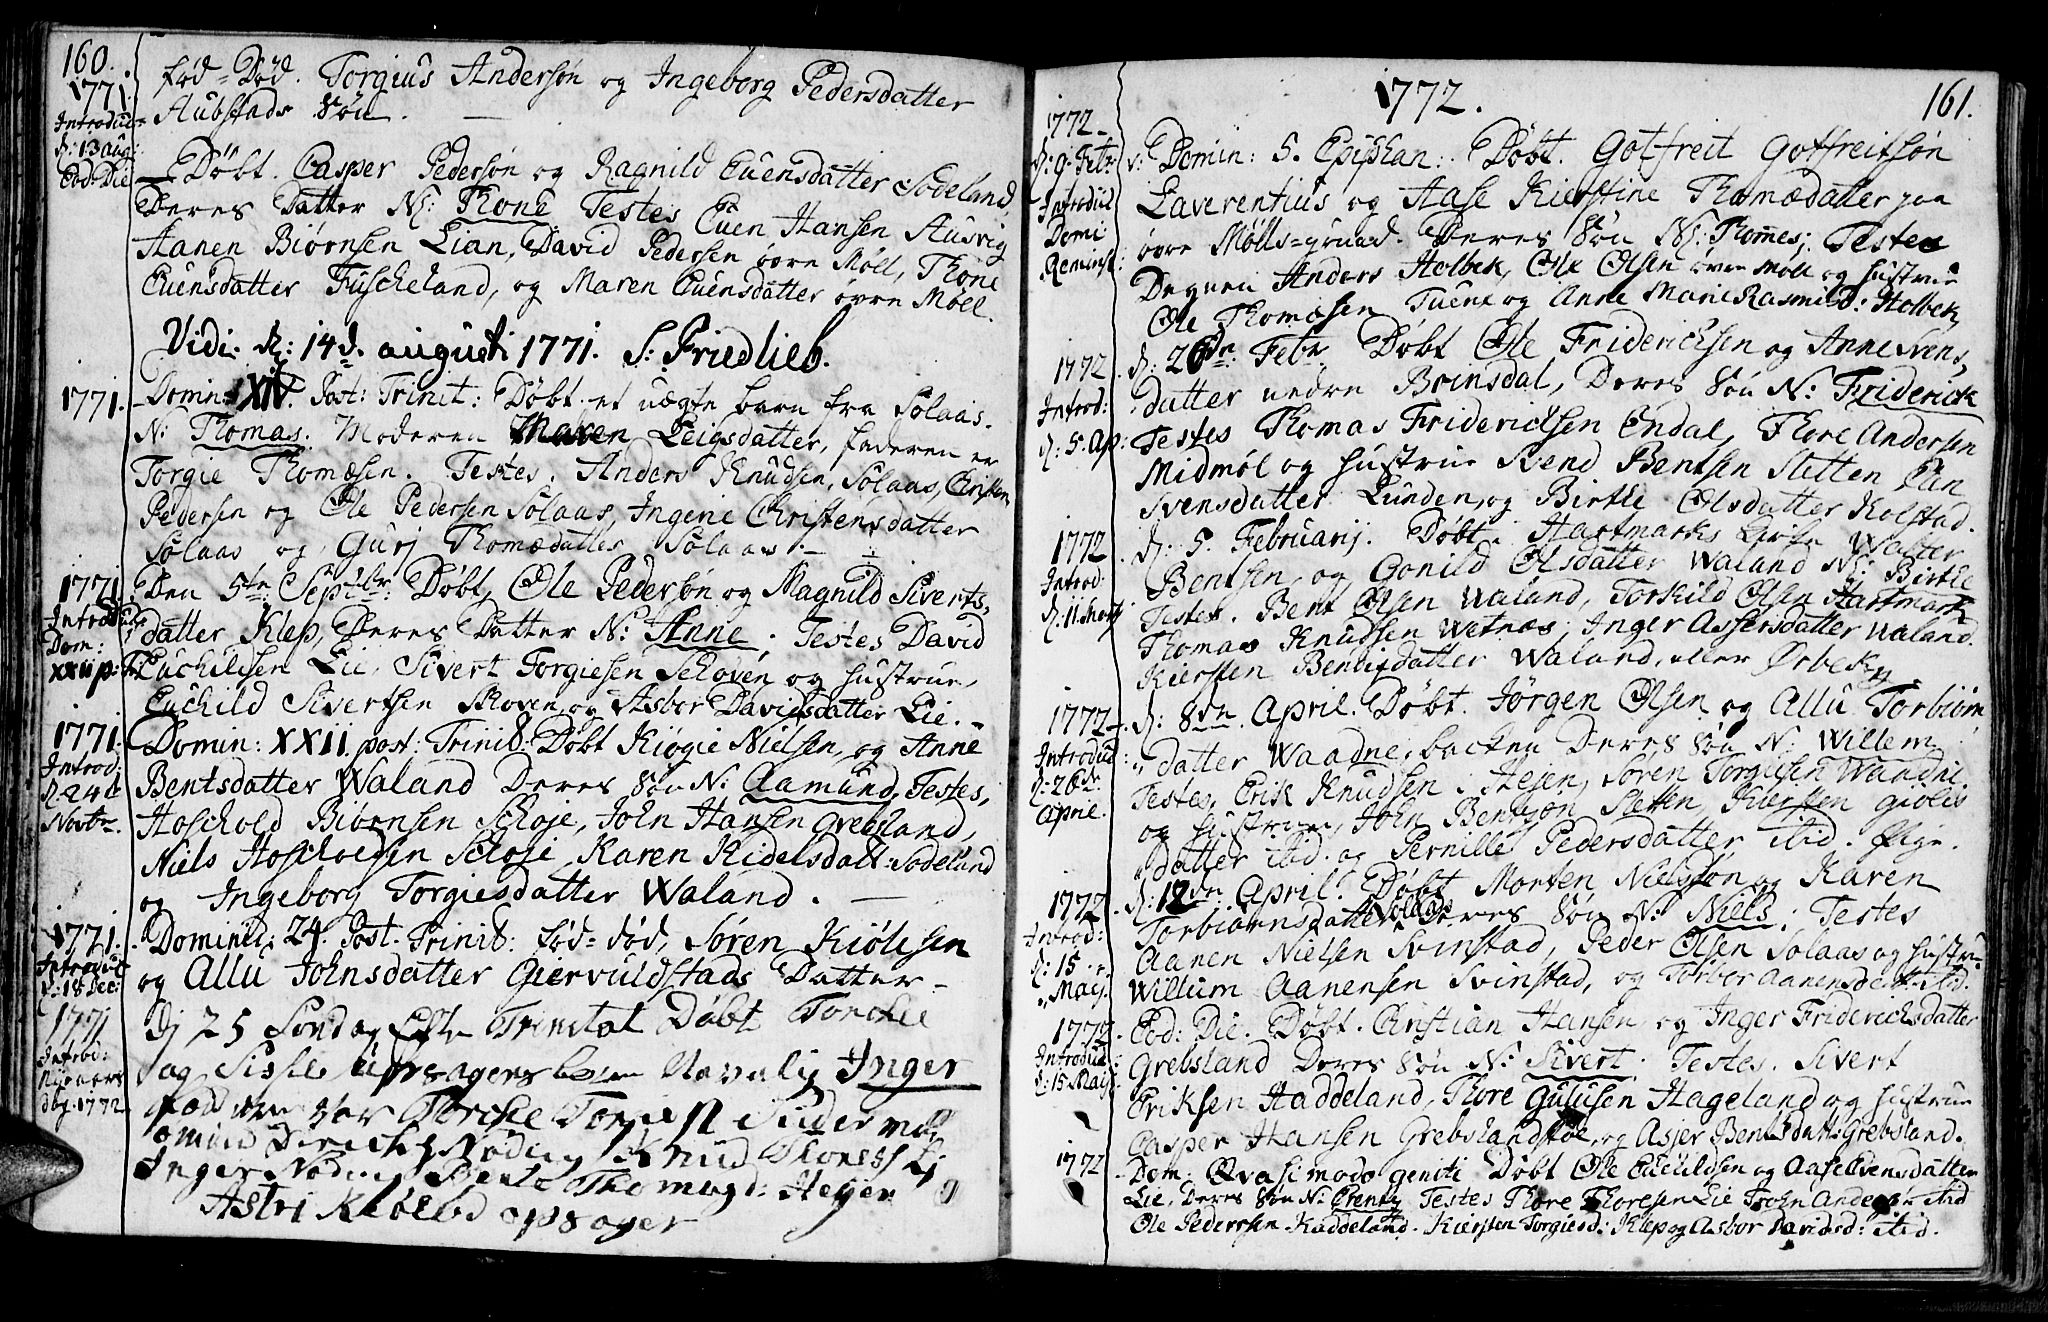 160.
1771.
Introduc=
d: 13 aug:
Eod: Die
fød=Død. Torgius Andersøn og Ingeborg Pedersdatter
Aubstads Søn.
Døbt. Casper Pedersøn og Ragnild Euensdatter Sodeland,
Deres Datter N: Thone Testes Euen Hansen Ausvig
Aanen Biørnsen Lian, David Pedersen øvre Møll, Thone
Euensdatter Fuscheland, og Maren Euensdatter øvre Møll.
Vidi. d: 14d. augusti 1771. S: Friedlieb.
1771.
Domin: XIV. Post: Trinit: Døbt et uægte barn fra Solaas.
N: Thomas. Moderen Maren Leigsdatter, faderen er
Torgie Thomæsen. Testes. Anders Knudsen, Solaas, Christen
Pedersen og Ole Pedersen Solaas, Ingerie Christensdatter
Solaas og Gurj Thomædatter Solaas.
1771.
Introduc
Dom:
XXII p: Tr:
Den 5te Septbr: Døbt, Ole Pedersøn og Magnild Siverts,
datter Klep, Deres Datter N: Anne; Testes David
Euchildsen Lie, Sivert Torgiesen Schoven og hustrue,
Euchild Sivertsen Skoven, og Asbor Davidsdatter Lie.
1771.
Introd:
d. 24de
Novbr.
Domin: XXII post: Trinit: Døbt Kiøgie Nielsen, og Anne
Bentsdatter Waland Deres Søn N: Aamund, Testes,
Hoschold Biørnsen Schoje, John Hansen Grebsland,
Niels Hoscholdsen Schoje, Karen Kidelsdatt: Sodeland
og Ingeborg Torgiesdatter Waland.
1771.
Introduc
d: 18 Dec:
Domined: 24. Post. Trinit: fød=død, Søren Kiølesen
og Allu Johnsdatter Giervuldstads Datter
1771
Introd:
Nyeaars
dag 1772
Dj 25 Søndag Efter Trinitat Døbt Torckel
og Sissel Upsagers barn Navnlig Inger
Fadderne var Torckel Torgiesen
Dirich Nøding Knud
Inger Nøding Thomasd: Hejen
Astri Kleøled opsager
1772.
161.
1772
d: 9. Febr
Introduc
Domi:
Reminisc:
Domin: 5. Epiphan: Døbt. Gotfreit Gotfreitsøn
Laverentius og Aase Kierstine Thomædatter paa
øvre Mølls=grund. Deres Søn N: Thomes; Testes
Degnen Anders Holbek, Ole Olsen øvre Møll og hustrue
Ole Thomæsen Tuene og Anne Marie Rasmusd: Holbek,
1772
Introd:
d: 5. Ap:
d: 26de Febr Døbt Ole Fridericksen og Anne Svens,
datter nedre Brinsdal, Deres Søn N: Friderick
Testes Thomas Fridericksen Endal, Thore Andersen
Midmøl og hustrue Svend Bentsen Sletten
Svensdatter Lunden, og Birthe Olsdatter Kolstad.
1772
Introd:
d: 11. Martj
d: 5. Februarij. Døbt i Hartmarks Kirke Walter
Bentsen, og Gonild Olsdatter Waland N: Birthe
Testes. Bent Olsen Waland, Torkild Olsen Hartmark
Thomas Knudsen Wetnæs, Inger Assersdatter Waland.
Kiersten Bentsdatter Waland, eller Ørbek
1772.
Introduc
d: 26de
Aprie.
d: 8de April. Døbt. Jørgen Olsen og Allu Torbiørn
datter Waadne, backen Deres Søn N: Willem
Testes, Erik Knudsen i Hejen, Søren Torgiesen Wandne
og hustrue, John Bentsøn Sletten, Kiersten
datter ibid. og Pernille Pedersdatter ibid. Pige.
1772
Introd:
d: 15
Maij.
d: 12de April. Døbt Morten Nielsøn og Karen
Torbiørnsdatter Solaas Deres Søn N: Niels; Testes
Aanen Nielsen Svinstad, Peder Olsen Solaas og hustrue
Willum Aanensen Svinstad, og Torbor Aanensdatt: ibid.
1772
Introduc
d: 15 Maij.
Eod: Die. Døbt. Christian Hansen og Inger Friderichsdatter
Grebsland Deres Søn N: Sivert. Testes. Sivert
Eriksen Haddeland, Thore Gulusen Hageland og hustrue
Casper Hansen Grebsland, og Asjer Bentsdatt: Grebsland.
1772
Dom: Qvasimodo geniti Døbt Ole Euchildsen og Aase Evensdatter
Lie, Deres Søn N: Testes Thore Thoresen Lie John Andersen ibid
Ole Pederssen Kaddeland. Kiersten Torgiesd: Klep og Asbor Davidsd: ibid.